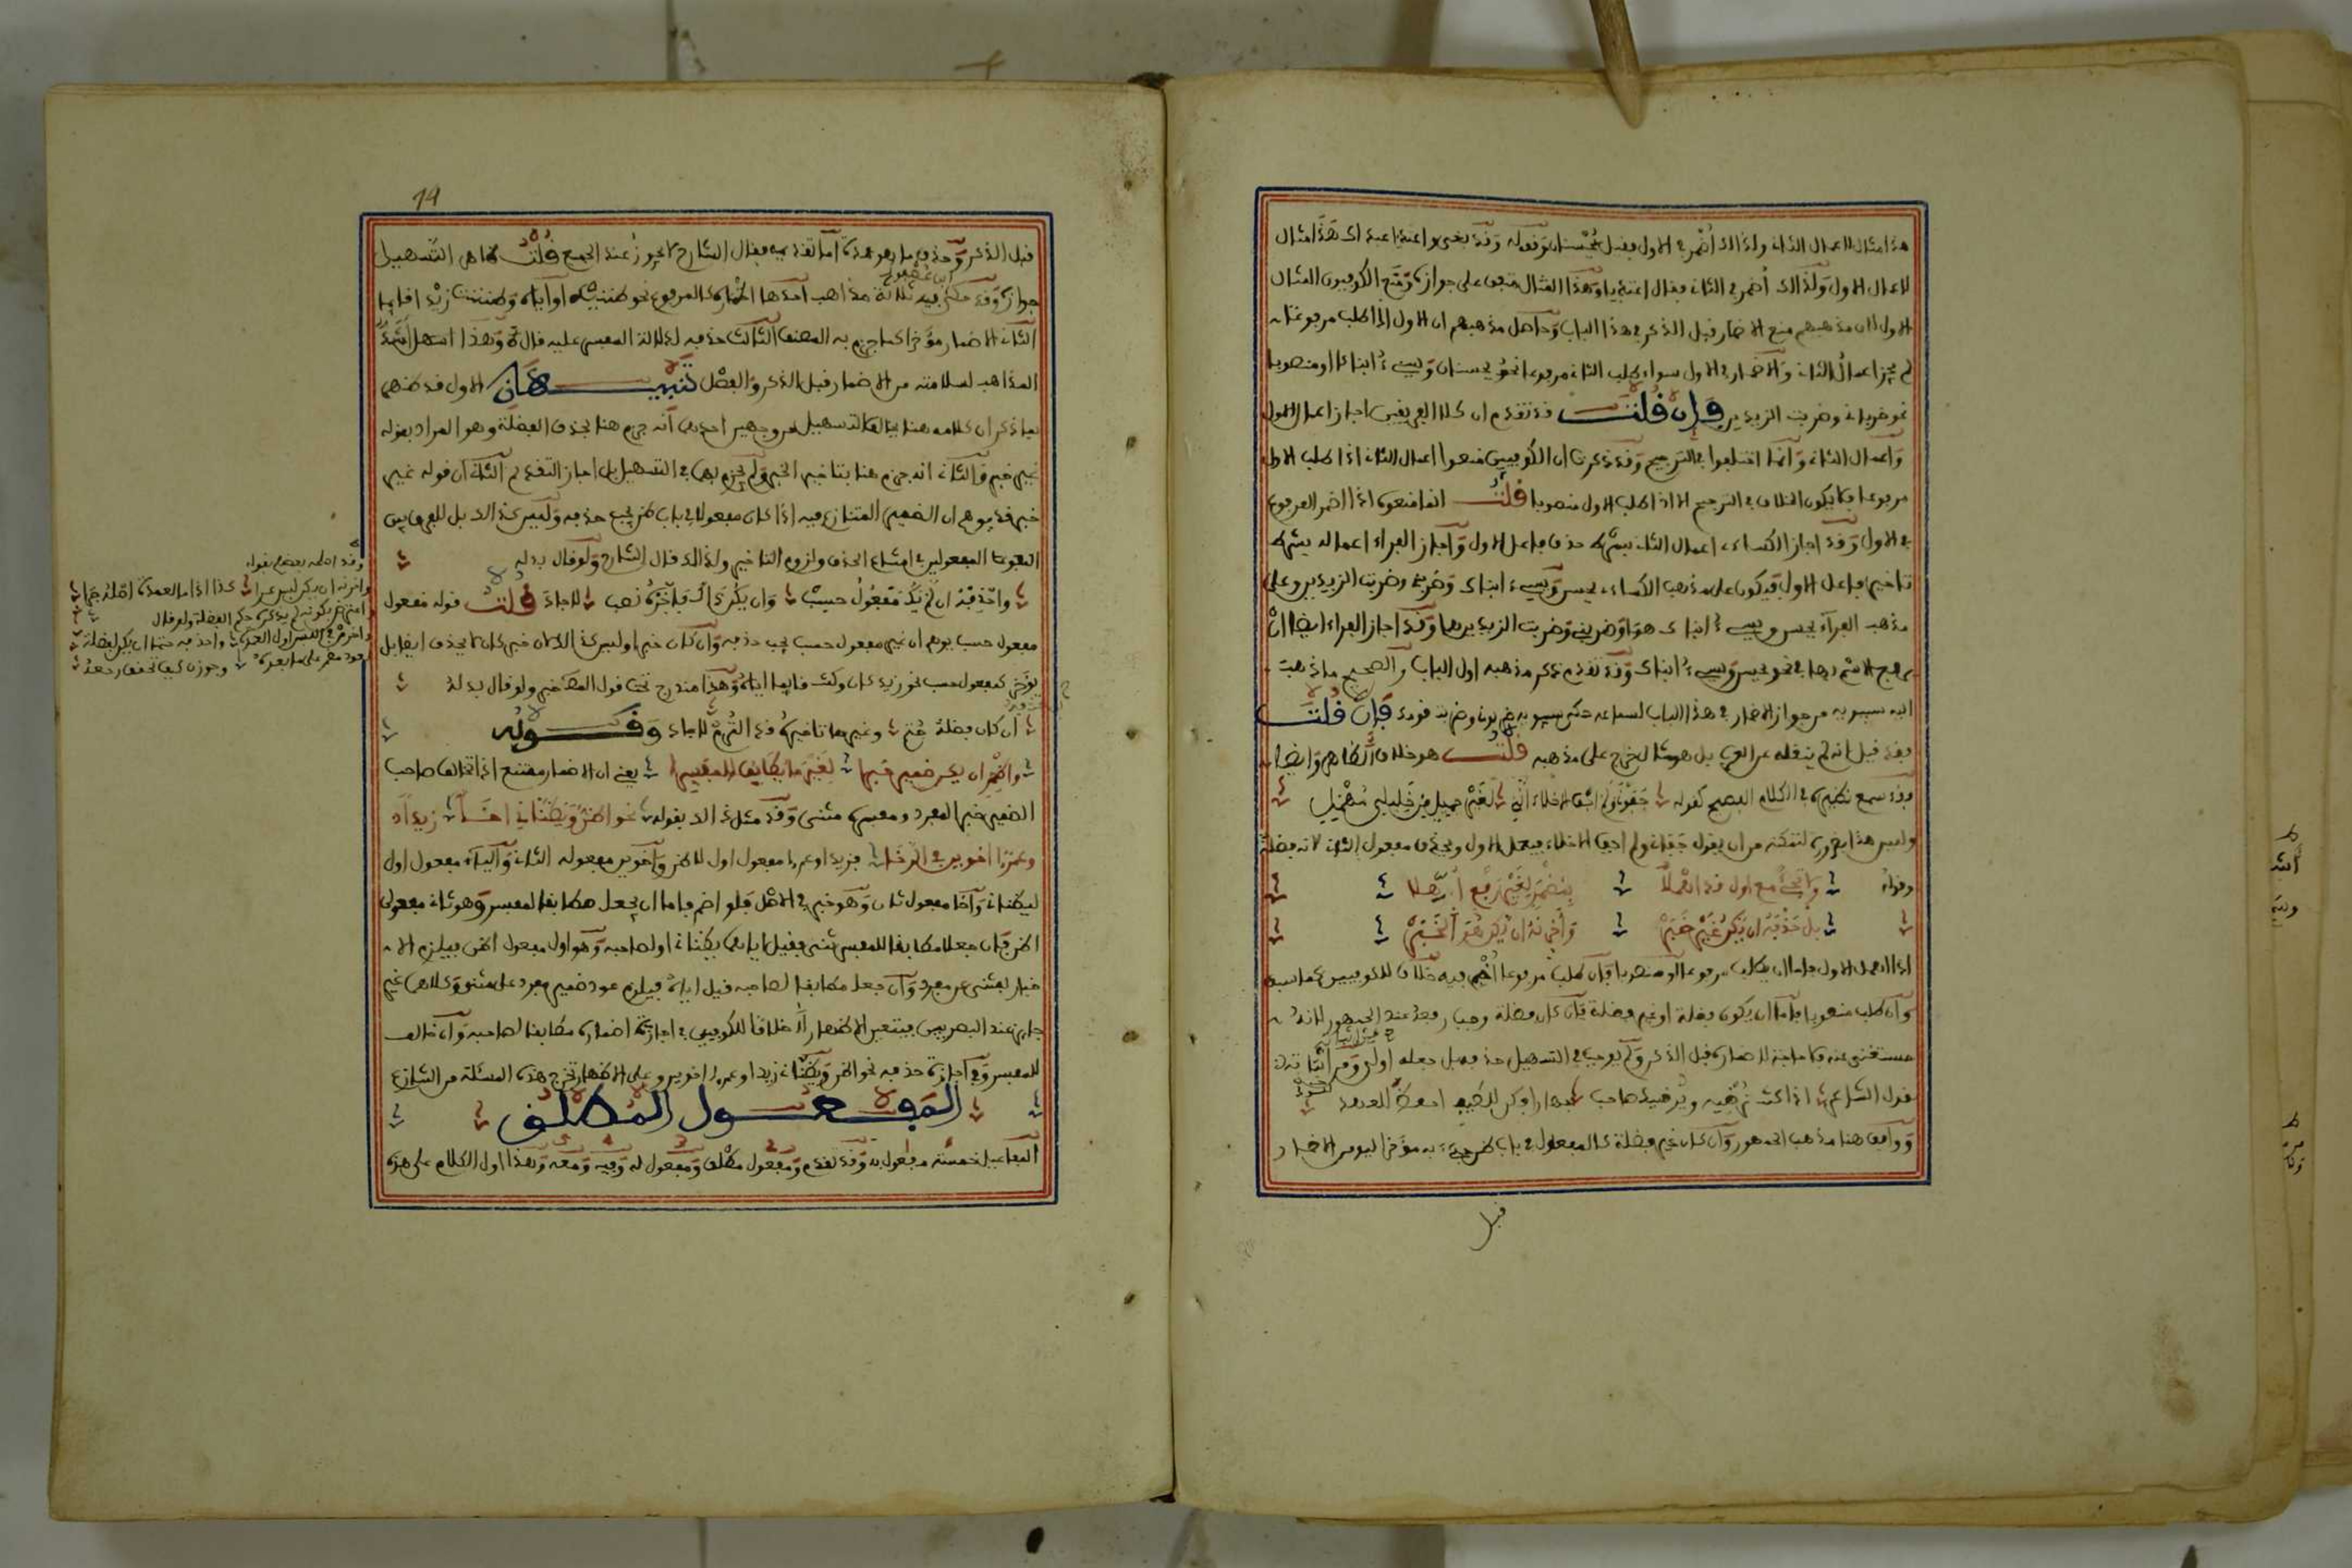 هذا مثال لاعمال الثاني ولذالك أضمر في الاول فقيل يُحْسِنان وقوله وقد بغى واعتديا عبداك هذا مثال
لاعمال الاول ولذالك أضمر في الثاني فقال اعتديا وهذا المثال متفق على جوازه ومنع الكوفيون المثال
الاول لان مذهبهم منع الاضمار قبل الذكر في هذا الباب وحاصل مذهبهم ان الاول اذا طلب مرفوعا
لم يجز اعمال الثاني والاضمار في الاول سواء طلب الثاني مرفوعا نحو يحسنان ويسيء ابناكا او منصوبا
نحو ضرباني وضربت الزيدين فإن قلت قد تقدم ان كلا الفريقين اجاز اعمال الاول
واعمال الثاني وانما اختلفوا في الترجيح وقد ذكرت ان الكوفيين منعوا اعمال الثاني اذا طلب الاول
مرفوعا فلا يكون الخلاف في الترجيح الا اذا طلب الاول منصوبا قلت انما منعوه اذا اضمر المرفوع
في الاول وقد اجاز الكسائي اعمال الثاني بشرط حذف فاعل الاول واجاز الفراء اعماله بشرط
تاخير فاعل الاول فيكون على مذهب الكساءي يحسن ويسيء ابناك وضربني وضربت الزيدين وعلى
مذهب الفراء يحسن ويسيء ابناك هما وضربني وضربت الزيدين هما وقد اجاز الفراء ايضا ان
يرفع الاسم بهما في نحو يحسن ويسيء ابناك وقد تقدم ذكر مذهبه اول الباب والصحيح ما ذهب
اليه سيبويه من جواز الاضمار في هذا الباب لسماعه حكى سيبويه ضربوني وضربت قومك فإن قلت
فقد قيل انه لم ينقله عن العرب بل هو مثال خرج على مذهبه قلت هو خلاف الظاهر وايضا
فقد سمع نظيره في الكلام الفصيح كقوله جفوني ولم اجف الاخلاء انني لغير جميل من خليلي مُهْمِل
وليس هذا بضرورة لتمكنه من ان يقول جفاني ولم اجف الاخلاء فيعمل الاول ويحذف مفعول الثاني لانه فضلة
وقوله ولا تجئ مع اول قد اهملا بمضمر لغير رفع أُوهِلا
بل حذفه ان يكن غير خبر وأخرنه ان يكن هو الخبر
اذا اهمل الاول فاما ان يطلب مرفوعا او منصوبا فان طلب مرفوعا أُضمر فيه خلافا للكوفيين كما سبق
وان طلب منصوبا فاما ان يكون فضلة او غير فضلة فان كان فضلة وجب حذفه عند الجمهور لانه
مستغنى عنه فلا حاجة لاضماره قبل الذكر ولم يوجب في التسهيل حذفه بل جعله اولى ومن اثباته
قول الشاعر اذا كنت ترضيه ويرضيك صاحب جهارا فكن للغيب احفظ للعهد
ووافق هنا مذهب الجمهور وان كان غير فضلة كالمفعول في باب ظن جيء به مؤخرا ليومن الاضمار
قبل
قبل الذكر وحذف ما هو عمدة اما تقديمه فقال الشارح لا يجوز عند الجميع قلت ظاهر التسهيل
جوازه وقد حكى فيه ابن عصفور ثلاثة مذاهب احدها اضماره كالمرفوع نحو ظننيه او اياه وظننت زيدا قايما
الثاني الاضمار مؤخرا كما جزم به المصنف الثالث حذفه لدلالة المفسر عليه قال وهذا اسهل
المذاهب لسلامته من الاضمار قبل الذكر والفصل تنبيهان الاول قد ظهر
بما ذكر ان كلامه هنا يخالف التسهيل من وجهين احدهما انه جزم هنا بحذف الفضلة وهو المراد بقوله
غير خبر والثاني انه جزم هنا بتاخير الخبر ولم يجزم به في التسهيل بل اجاز التقديم الثاني ان قوله غير
خبر قد يوهم ان الضمير المتنازع فيه اذا كان مفعولا في باب ظن يجب حذفه وليس كذالك بل لا فرق بين
المفعولين في امتناع الحذف ولزوم التاخير ولذالك قال الشارح ولو قال بدله
واحذفه ان لم يك مفعول حسب وان يكن ذاك فأخره تصب لاجاد قلت قوله مفعول
مفعول حسب يوهم ان غير مفعول حسب يجب حذفه وان كان خبرا وليس كذالك لان خبر كان لا يحذف ايضا بل
يؤخر كمفعول حسب نحو زيد كان وكنت قايما اياه وهذا مندرج تحت قول المصنف خبر ولو قال بدله
ان كان فضلة حُتم وغيرها تاخيره قد التزم لاجاد وقوله
واظهر ان يكن ضمير خبرا لغير ما يطابق المفسرا يعني ان الاضمار ممتنع اذا خالف صاحب
الضمير خبر المفرد ومفسره مثنى وقد مثل ذالك بقوله نحو اظن ويظناني اخا زيدا
وعمرا اخوين في الرخا فزيدا وعمرا مفعول اول لاظن واخوين مفعوله الثاني والياء مفعول اول
ليظناني واخا مفعول ثان وهو خبر في الاصل فلو اضمر فاما ان يجعل مطابقا لمفسر وهو ثاني مفعولي
اظن فان جعل مطابقا للمفسر ثني فقيل اياهما يظناني اولصاحبه وهو اول مفعول اظن فيلزم الا
خبار بمثنى عن مفرد وان جعل مطابقا لصاحبه قيل اياه فيلزم عود ضمير مفرد على مثنى وكلاهما غير
جايز عند البصريين فيتعين الاظهار خلافا للكوفيين في اجازة اضماره مطابقا لصاحبه وان خالف
للمفسر وفي اجازة حذفه نحو اظن ويظناني زيدا وعمرا اخوين وعلى الاظهار تخرج هذه المسئلة من التنازع
المفعول المطلق
المفاعيل خمسة مفعول به وقد تقدم ومفعول مطلق ومفعول له وفيه ومعه وهذا اول الكلام على هذه
وقد اصلحه بعضهم بقوله